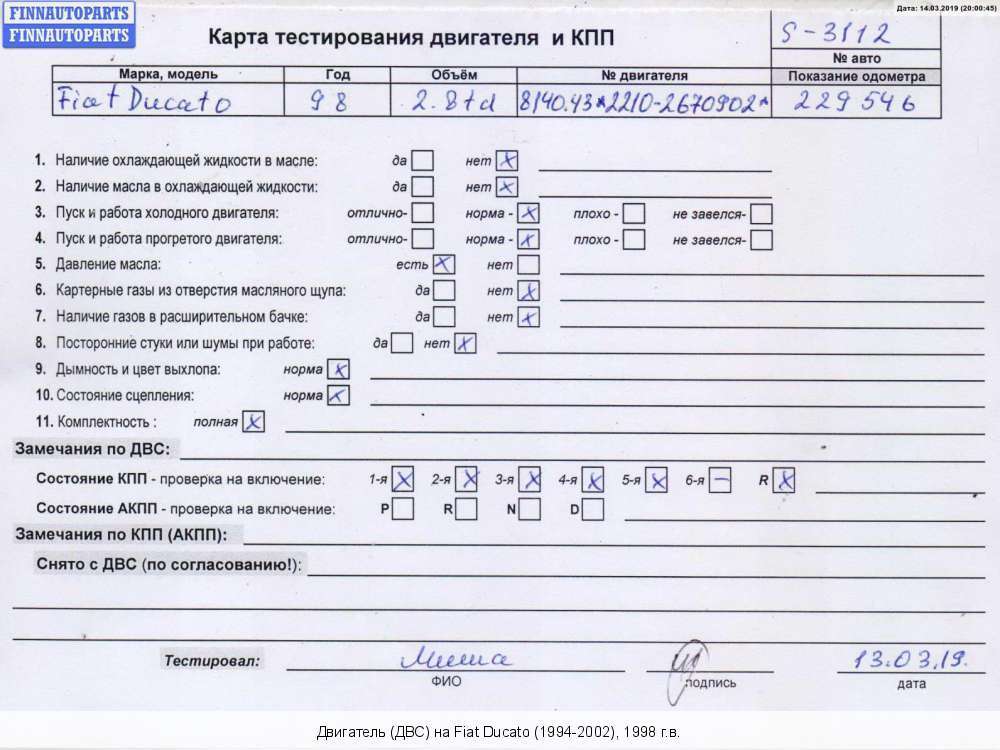 FINNAUTOPARTS
FINNAUTOPARTS
Дата: 14.03.2019 (20:00:45)
Карта тестирования двигателя и КПП
S-3112
№ авто
Марка, модель Год Объём № двигателя Показание одометра
Fiat Ducato 98 2.8td 8140.43*2210-2670902* 229546
1. Наличие охлаждающей жидкости в масле: да нет x
2. Наличие масла в охлаждающей жидкости: да нет x
3. Пуск и работа холодного двигателя: отлично- норма - x плохо - не завелся-
4. Пуск и работа прогретого двигателя: отлично- норма - x плохо - не завелся-
5. Давление масла: есть x нет
6. Картерные газы из отверстия масляного щупа: да нет x
7. Наличие газов в расширительном бачке: да нет x
8. Посторонние стуки или шумы при работе: да нет x
9. Дымность и цвет выхлопа: норма x
10. Состояние сцепления: норма x
11. Комплектность : полная x
Замечания по ДВС:
Состояние КПП - проверка на включение: 1-я x 2-я x 3-я x 4-я x 5-я x 6-я – R x
Состояние АКПП - проверка на включение: P R N D
Замечания по КПП (АКПП):
Снято с ДВС (по согласованию!):
Тестировал: Миша 13.03.19.
ФИО подпись дата
Двигатель (ДВС) на Fiat Ducato (1994-2002), 1998 г.в.